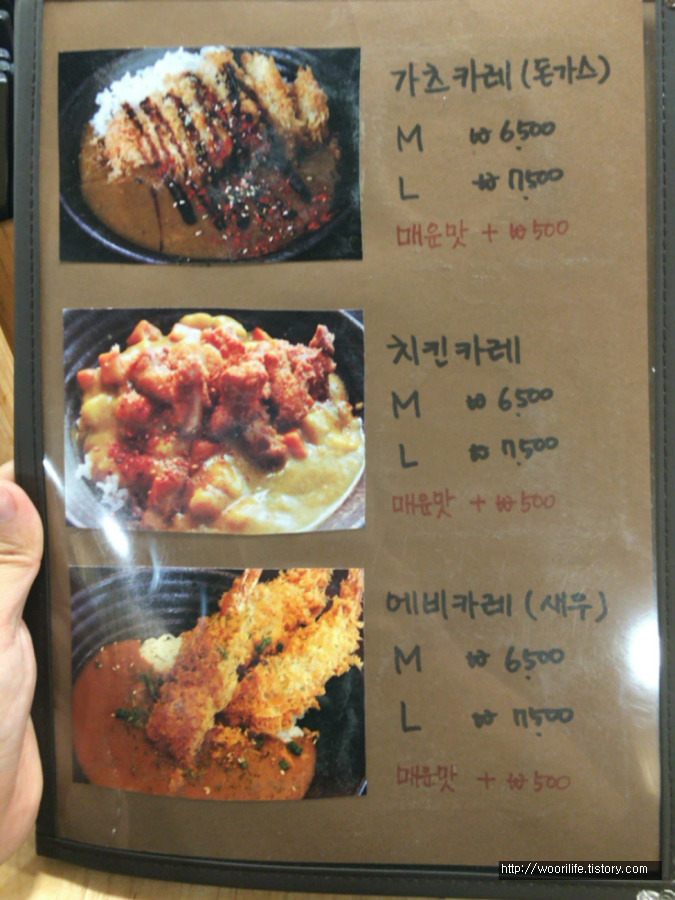 가츠카레 (돈가스)
M ₩ 6,500
L ₩ 7,500
매운맛 + ₩ 500
치킨카레
M ₩ 6,500
L ₩ 7,500
매운맛 + ₩ 500
에비카레 (새우)
M ₩ 6,500
L ₩ 7,500
매운맛 + ₩ 500
http://woorilife.tistory.com